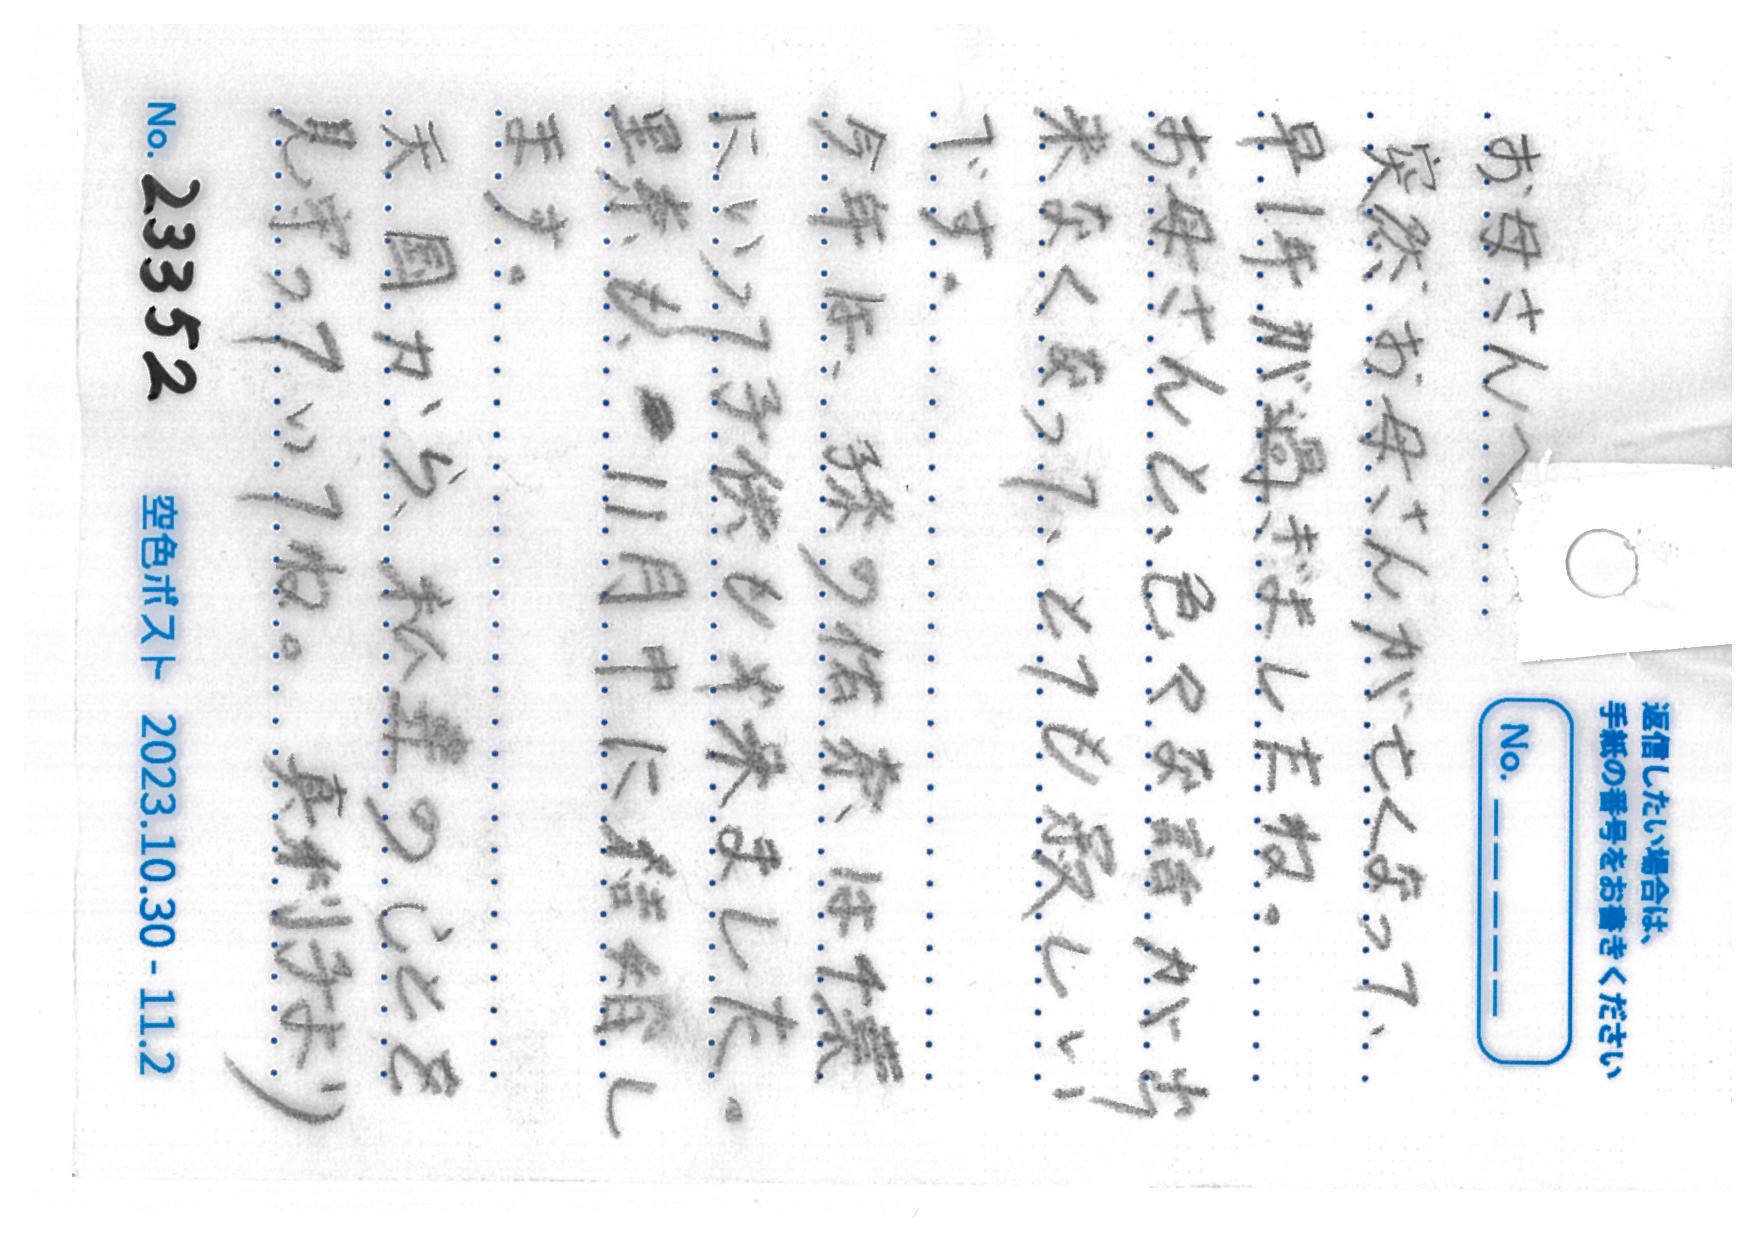 返信したい場合は、
手紙の番号をお書きください
No. _ _ _ _ _
お母さんへ
突然お母さんが亡くなって、
早1年が過ぎましたね。
お母さんと、色々な話が出
来なくなって、とても寂しい
です。
今年は、孫の佑奈は千葉
にいって子供も出来ました。
里奈も、11月中に結婚し
ます。
天国から、私達のことを
見守っていてね。 真利子より
No. 23352 空色ポスト 2023.10.30 - 11.2